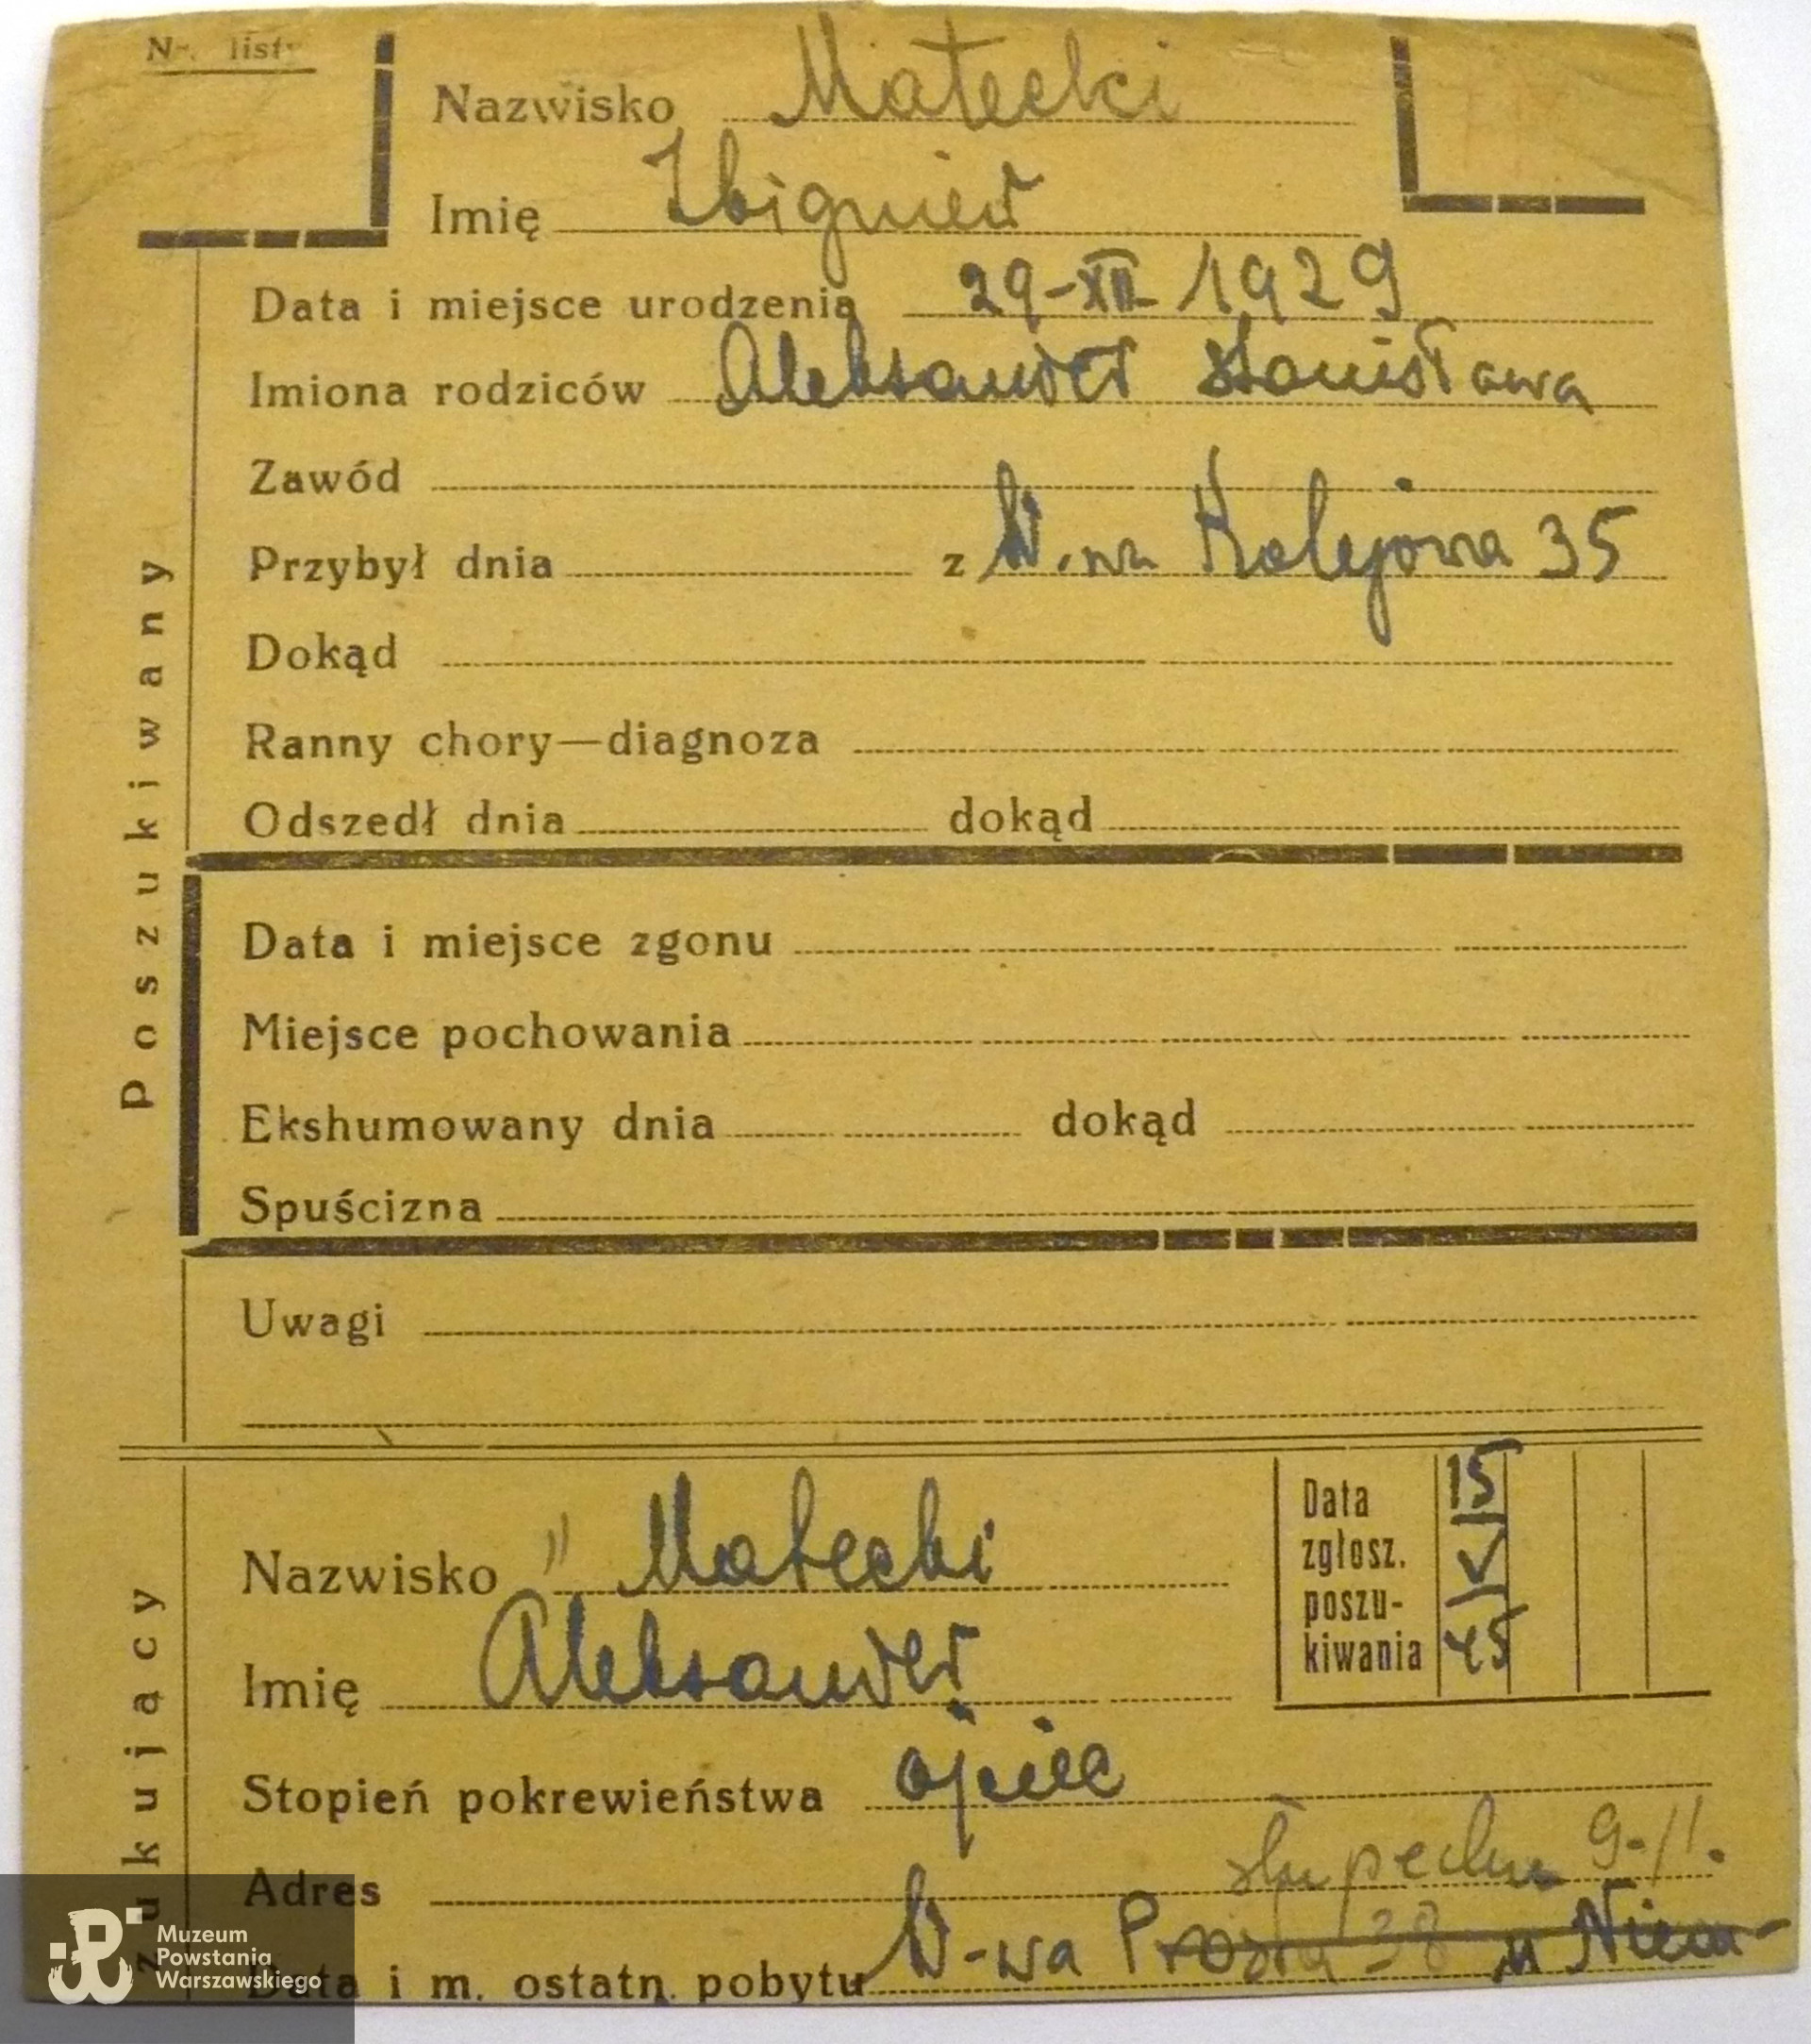 Nr. listy
Nazwisko Małecki
Imię Zbigniew
Data i miejsce urodzenia 29-XII 1929
Imiona rodziców Aleksander Stanisława
Zawód
Przybył dnia z W-wa Kolejowa 35
Dokąd
Ranny chory—diagnoza
Odszedł dnia dokąd
Data i miejsce zgonu
Miejsce pochowania
Ekshumowany dnia dokąd
Spuścizna
Uwagi
Poszukiwany
Nazwisko Małecki
Imię Aleksander
Data zgłosz. poszu-
kiwania
15
V
45
Stopień pokrewieństwa ojciec
Adres Słupecka 9-11.
W-wa Prosta 38 u Niem-
Data i m. ostatn. pobytu
zukujący
Muzeum
Powstania
Warszawskiego